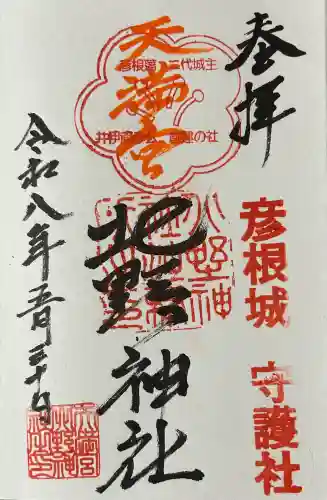 奉拝
彦根城 守護社
天満宮
彦根藩 二代城主
井伊直孝公 創建の社
北野神社
令和八年五月三十日